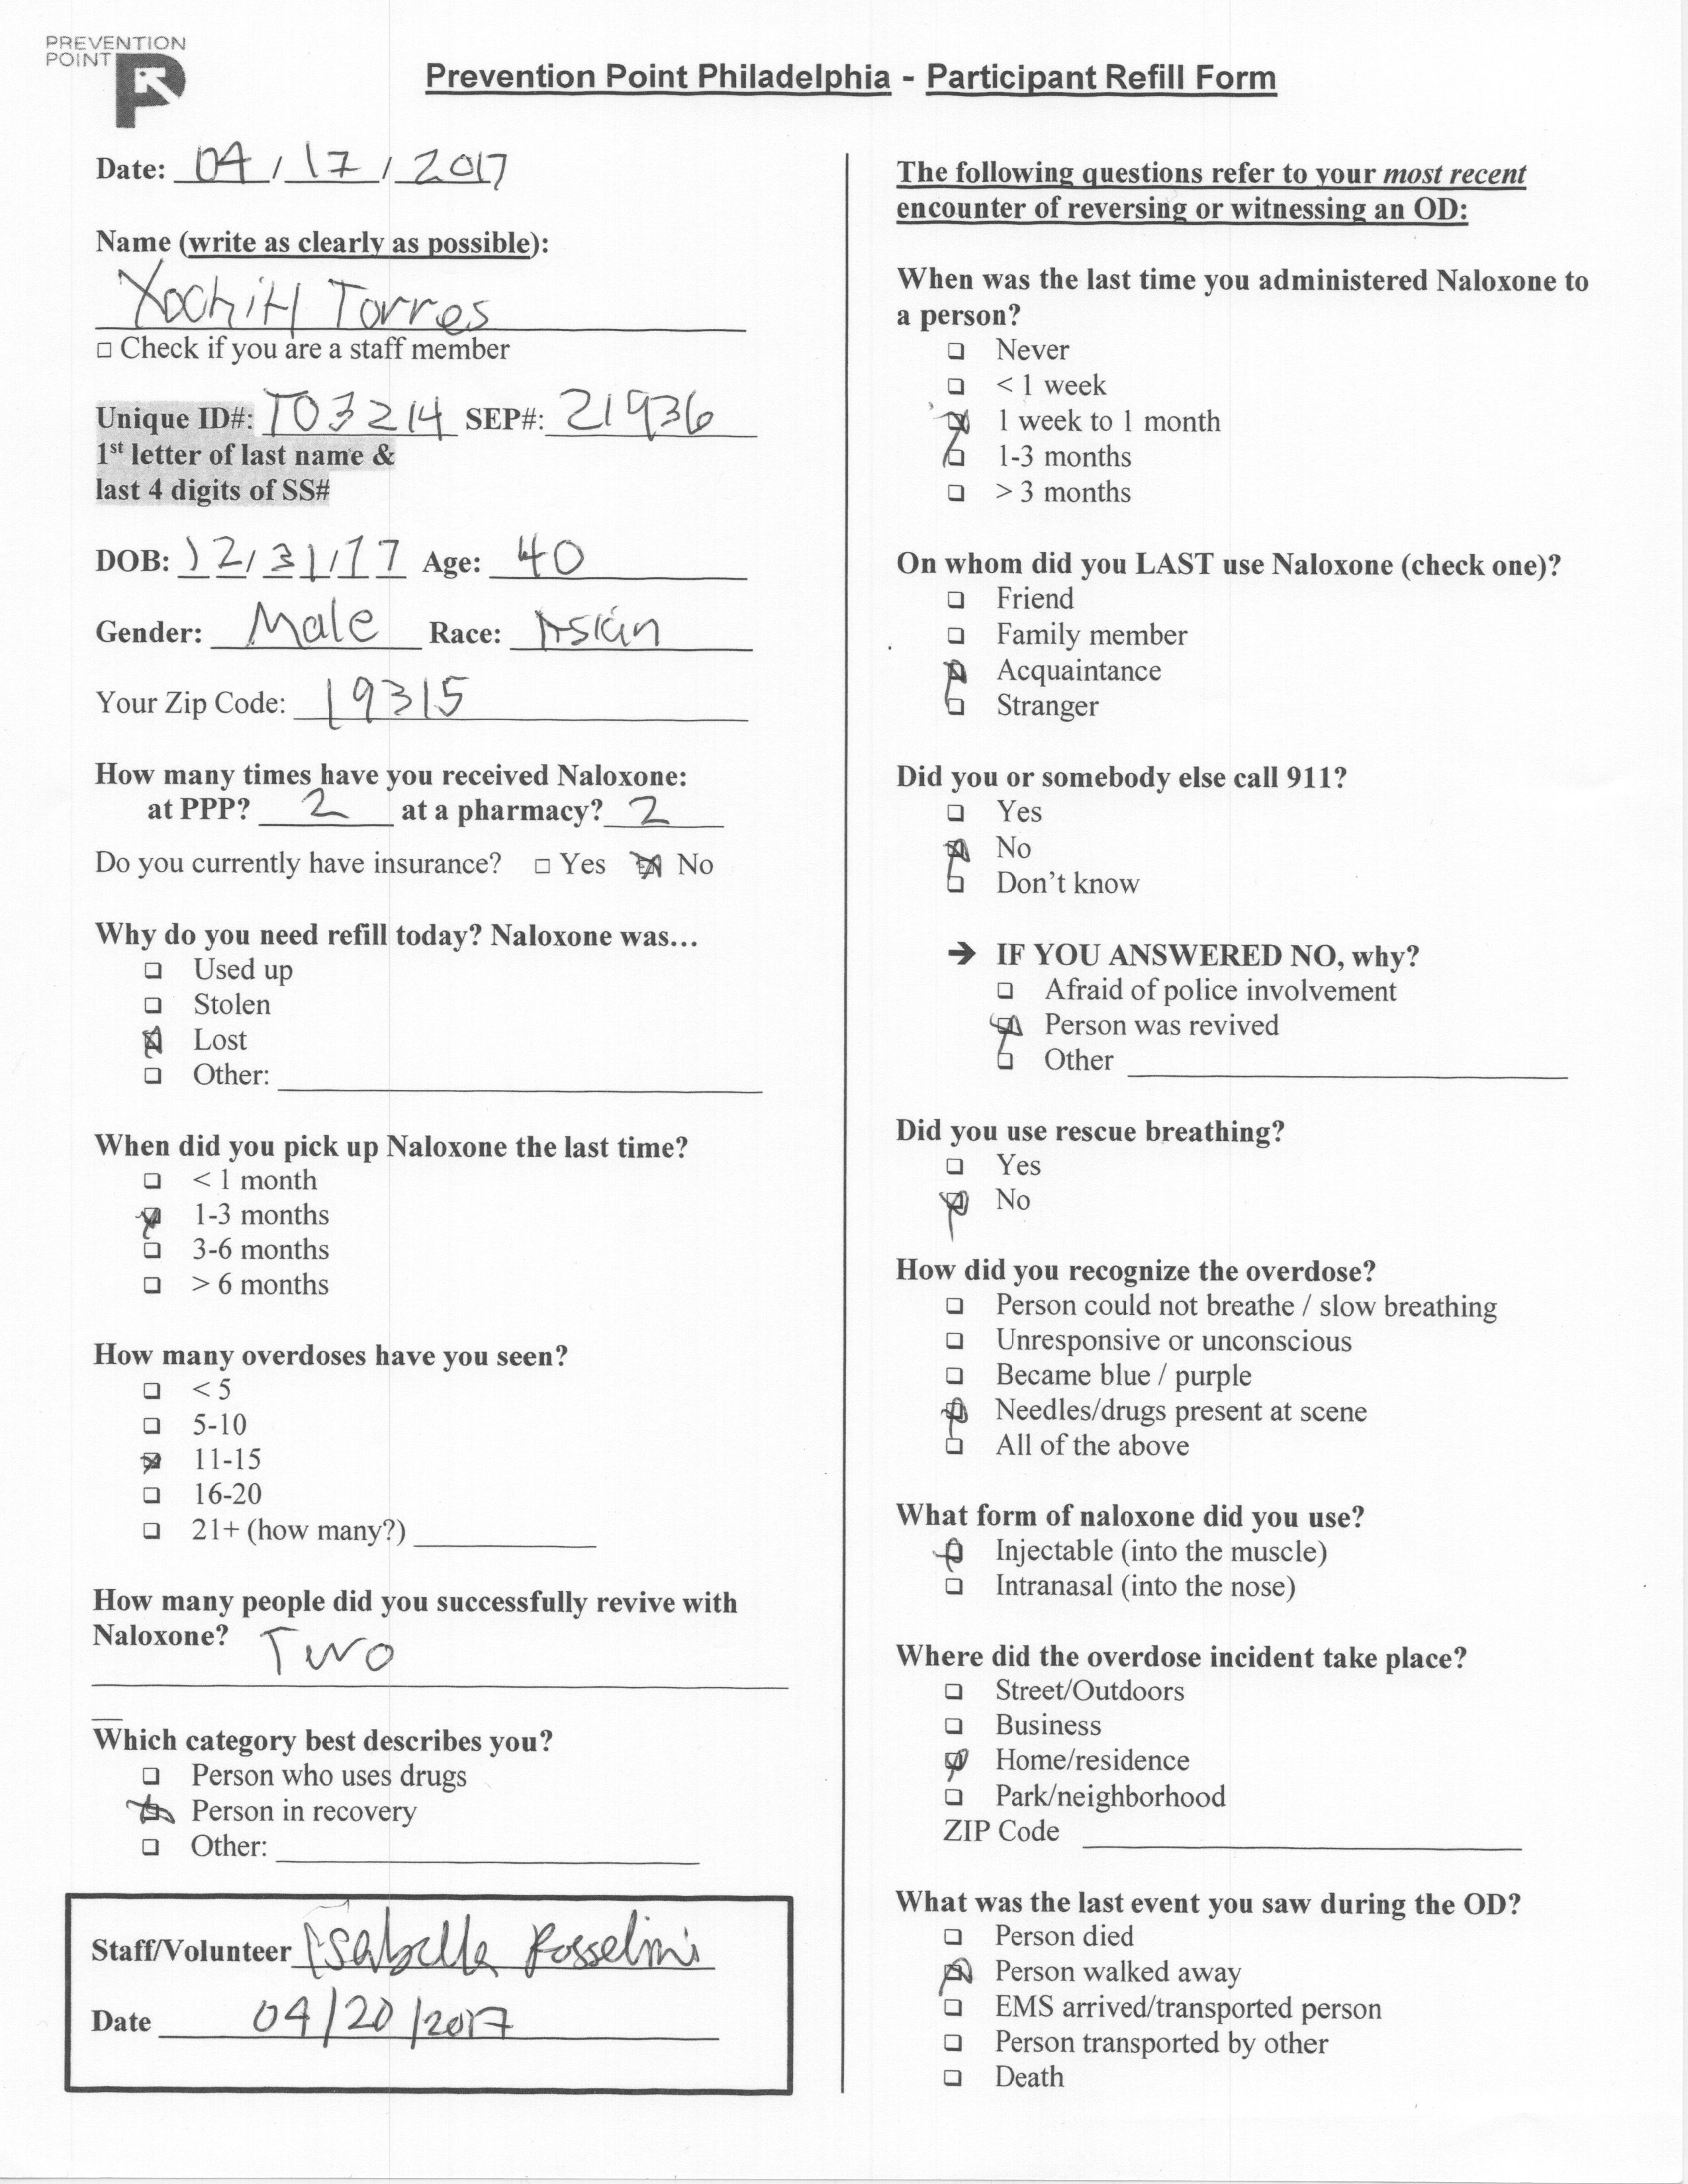 PREVENTION
POINT
Prevention Point Philadelphia - Participant Refill Form
Date: 04 / 17 / 2017
Name (write as clearly as possible):
Xochitl Torres
□ Check if you are a staff member
Unique ID#: T03214 SEP#: 21936
1st letter of last name &
last 4 digits of SS#
DOB: 12/31/77 Age: 40
Gender: Male Race: Asian
Your Zip Code: 19315
How many times have you received Naloxone:
at PPP? 2 at a pharmacy? 2
Do you currently have insurance? □ Yes ☒ No
Why do you need refill today? Naloxone was…
❑ Used up
❑ Stolen
☒ Lost
❑ Other:
When did you pick up Naloxone the last time?
❑ < 1 month
☒ 1-3 months
❑ 3-6 months
❑ > 6 months
How many overdoses have you seen?
❑ < 5
❑ 5-10
☒ 11-15
❑ 16-20
❑ 21+ (how many?)
How many people did you successfully revive with
Naloxone? Two
Which category best describes you?
❑ Person who uses drugs
☒ Person in recovery
❑ Other:
Staff/Volunteer Isabella Rosselini
Date 04/20/2017
The following questions refer to your most recent
encounter of reversing or witnessing an OD:
When was the last time you administered Naloxone to
a person?
❑ Never
❑ < 1 week
☒ 1 week to 1 month
❑ 1-3 months
❑ > 3 months
On whom did you LAST use Naloxone (check one)?
❑ Friend
❑ Family member
☒ Acquaintance
❑ Stranger
Did you or somebody else call 911?
❑ Yes
☒ No
❑ Don't know
➔ IF YOU ANSWERED NO, why?
❑ Afraid of police involvement
☒ Person was revived
❑ Other
Did you use rescue breathing?
❑ Yes
☒ No
How did you recognize the overdose?
❑ Person could not breathe / slow breathing
❑ Unresponsive or unconscious
❑ Became blue / purple
☒ Needles/drugs present at scene
❑ All of the above
What form of naloxone did you use?
☒ Injectable (into the muscle)
❑ Intranasal (into the nose)
Where did the overdose incident take place?
❑ Street/Outdoors
❑ Business
☒ Home/residence
❑ Park/neighborhood
ZIP Code
What was the last event you saw during the OD?
❑ Person died
☒ Person walked away
❑ EMS arrived/transported person
❑ Person transported by other
❑ Death